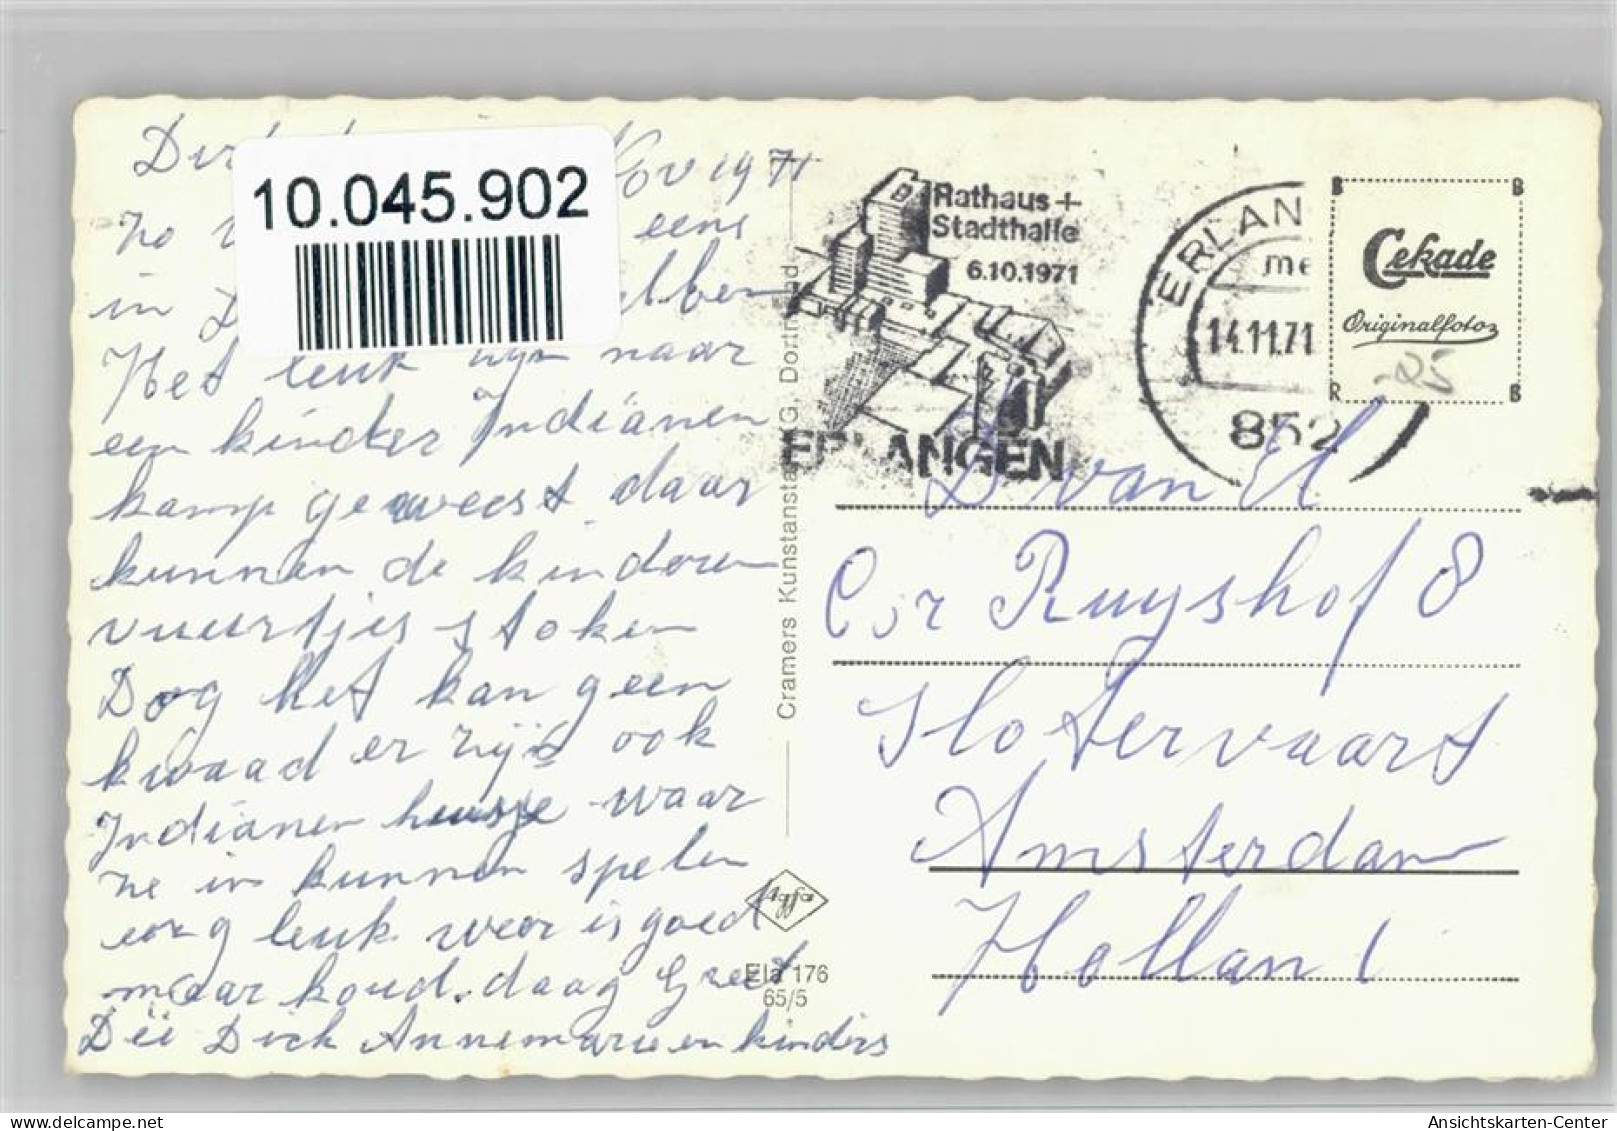 Nov 1971
10.045.902
eens
in
Het leuk naar
een kinder Indianen
kamp geweest daar
kunnen de kinderen
vuurtjes stoken
Dog het kan geen
kwaad er zijn ook
Indianen huisje waar
ze in kunnen spelen
erg leuk weer is goed
maar koud. daag Greet
Dick Annemarie en kinders
Cramers Kunstanstalt KG, Dortmund
Agfa
Ela 176
65/5
Rathaus +
Stadthalle
6.10.1971
ERLANGEN
ERLAN
me
14.11.71
852
B B
Cekade
Originalfoto
R B
-25
D van El
Cor Ruyshof 8
Slotervaart
Amsterdam
Holland
delcampe.net
Ansichtskarten-Center